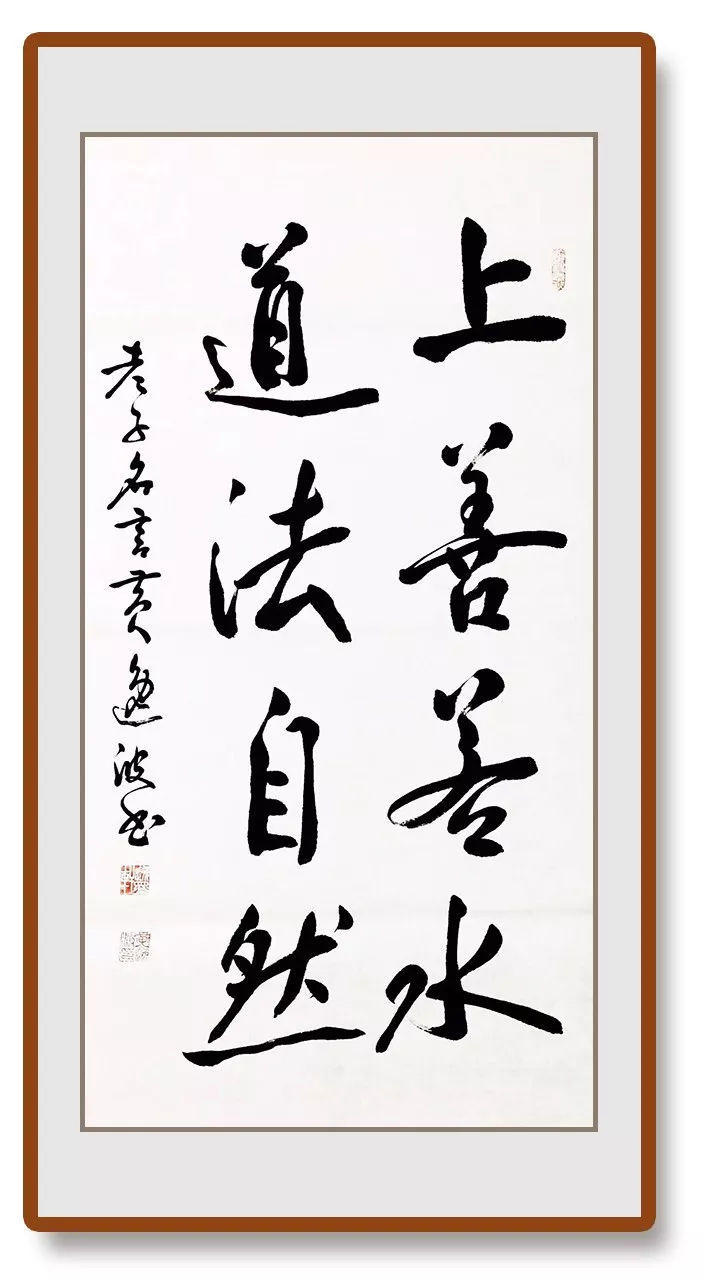 上善若水
道法自然
老子名言黄逸波书